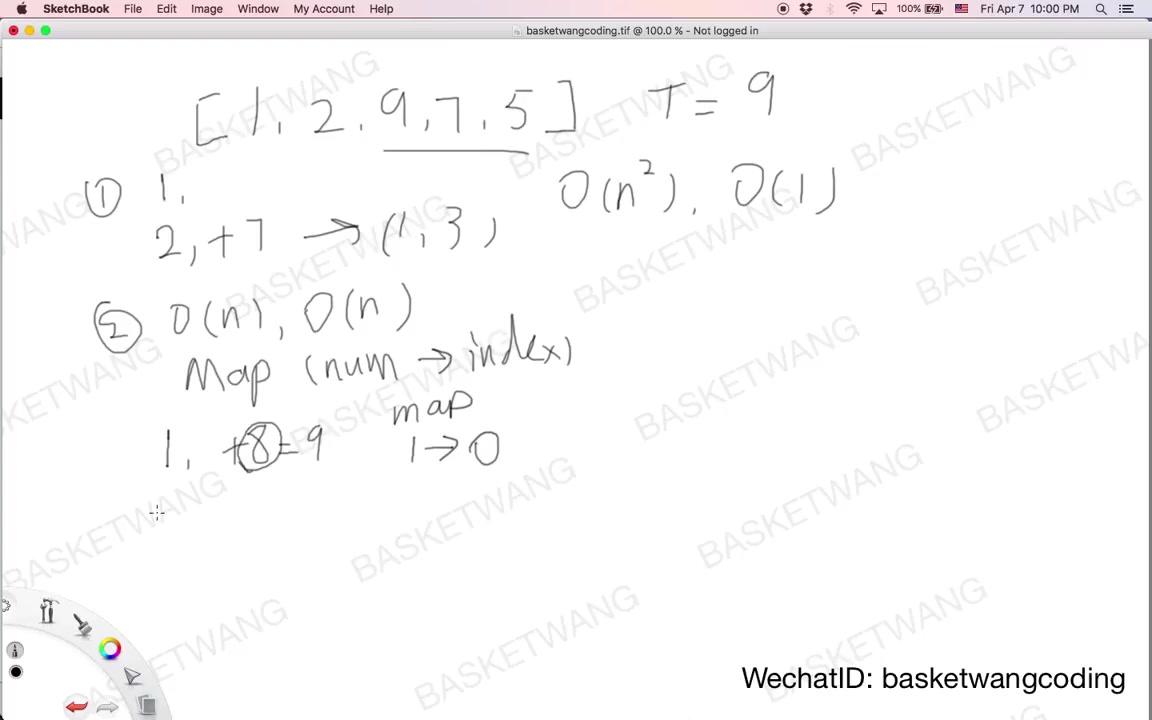 SketchBook File Edit Image Window My Account Help 100% Fri Apr 7 10:00 PM
basketwangcoding.tif @ 100.0 % - Not logged in
[1, 2, 9, 7, 5] T = 9
① 1,
O(n²), O(1)
2, +7 → (1, 3)
② O(n), O(n)
Map (num → index)
map
1, +8 = 9 1 → 0
WechatID: basketwangcoding
BASKETWANG